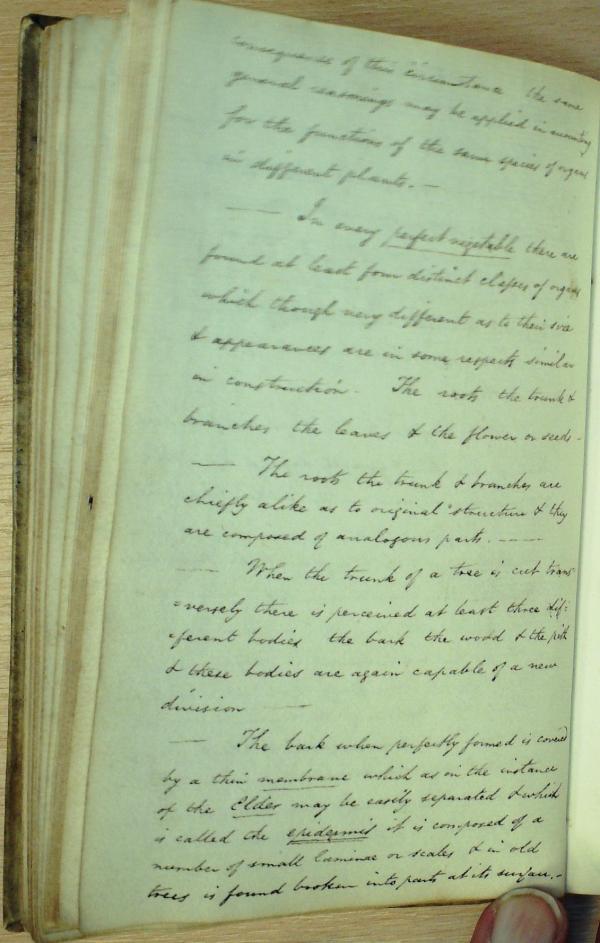 consequence of this circumstance the same
general reasonings may be applied in accounting
for the functions of the same species of organs
in different plants. —
— In every perfect vegetable there are
found at least four distinct classes of organs
which though very different as to their size
& appearances are in some respects similar
in construction. The roots the trunk &
branches the leaves & the flower or seeds -
— The roots the trunk & branches are
chiefly alike as to original structure & they
are composed of analogous parts. — —
— When the trunk of a tree is cut trans
=versely there is perceived at least three dif=
=ferent bodies the bark the wood & the pith
& these bodies are again capable of a new
division —
— The bark when perfectly formed is covered
by a thin membrane which as in the instance
of the Elder may be easily separated & which
is called the epidermis it is composed of a
number of small laminae or scales & in old
trees is found broken into parts at its surface. -